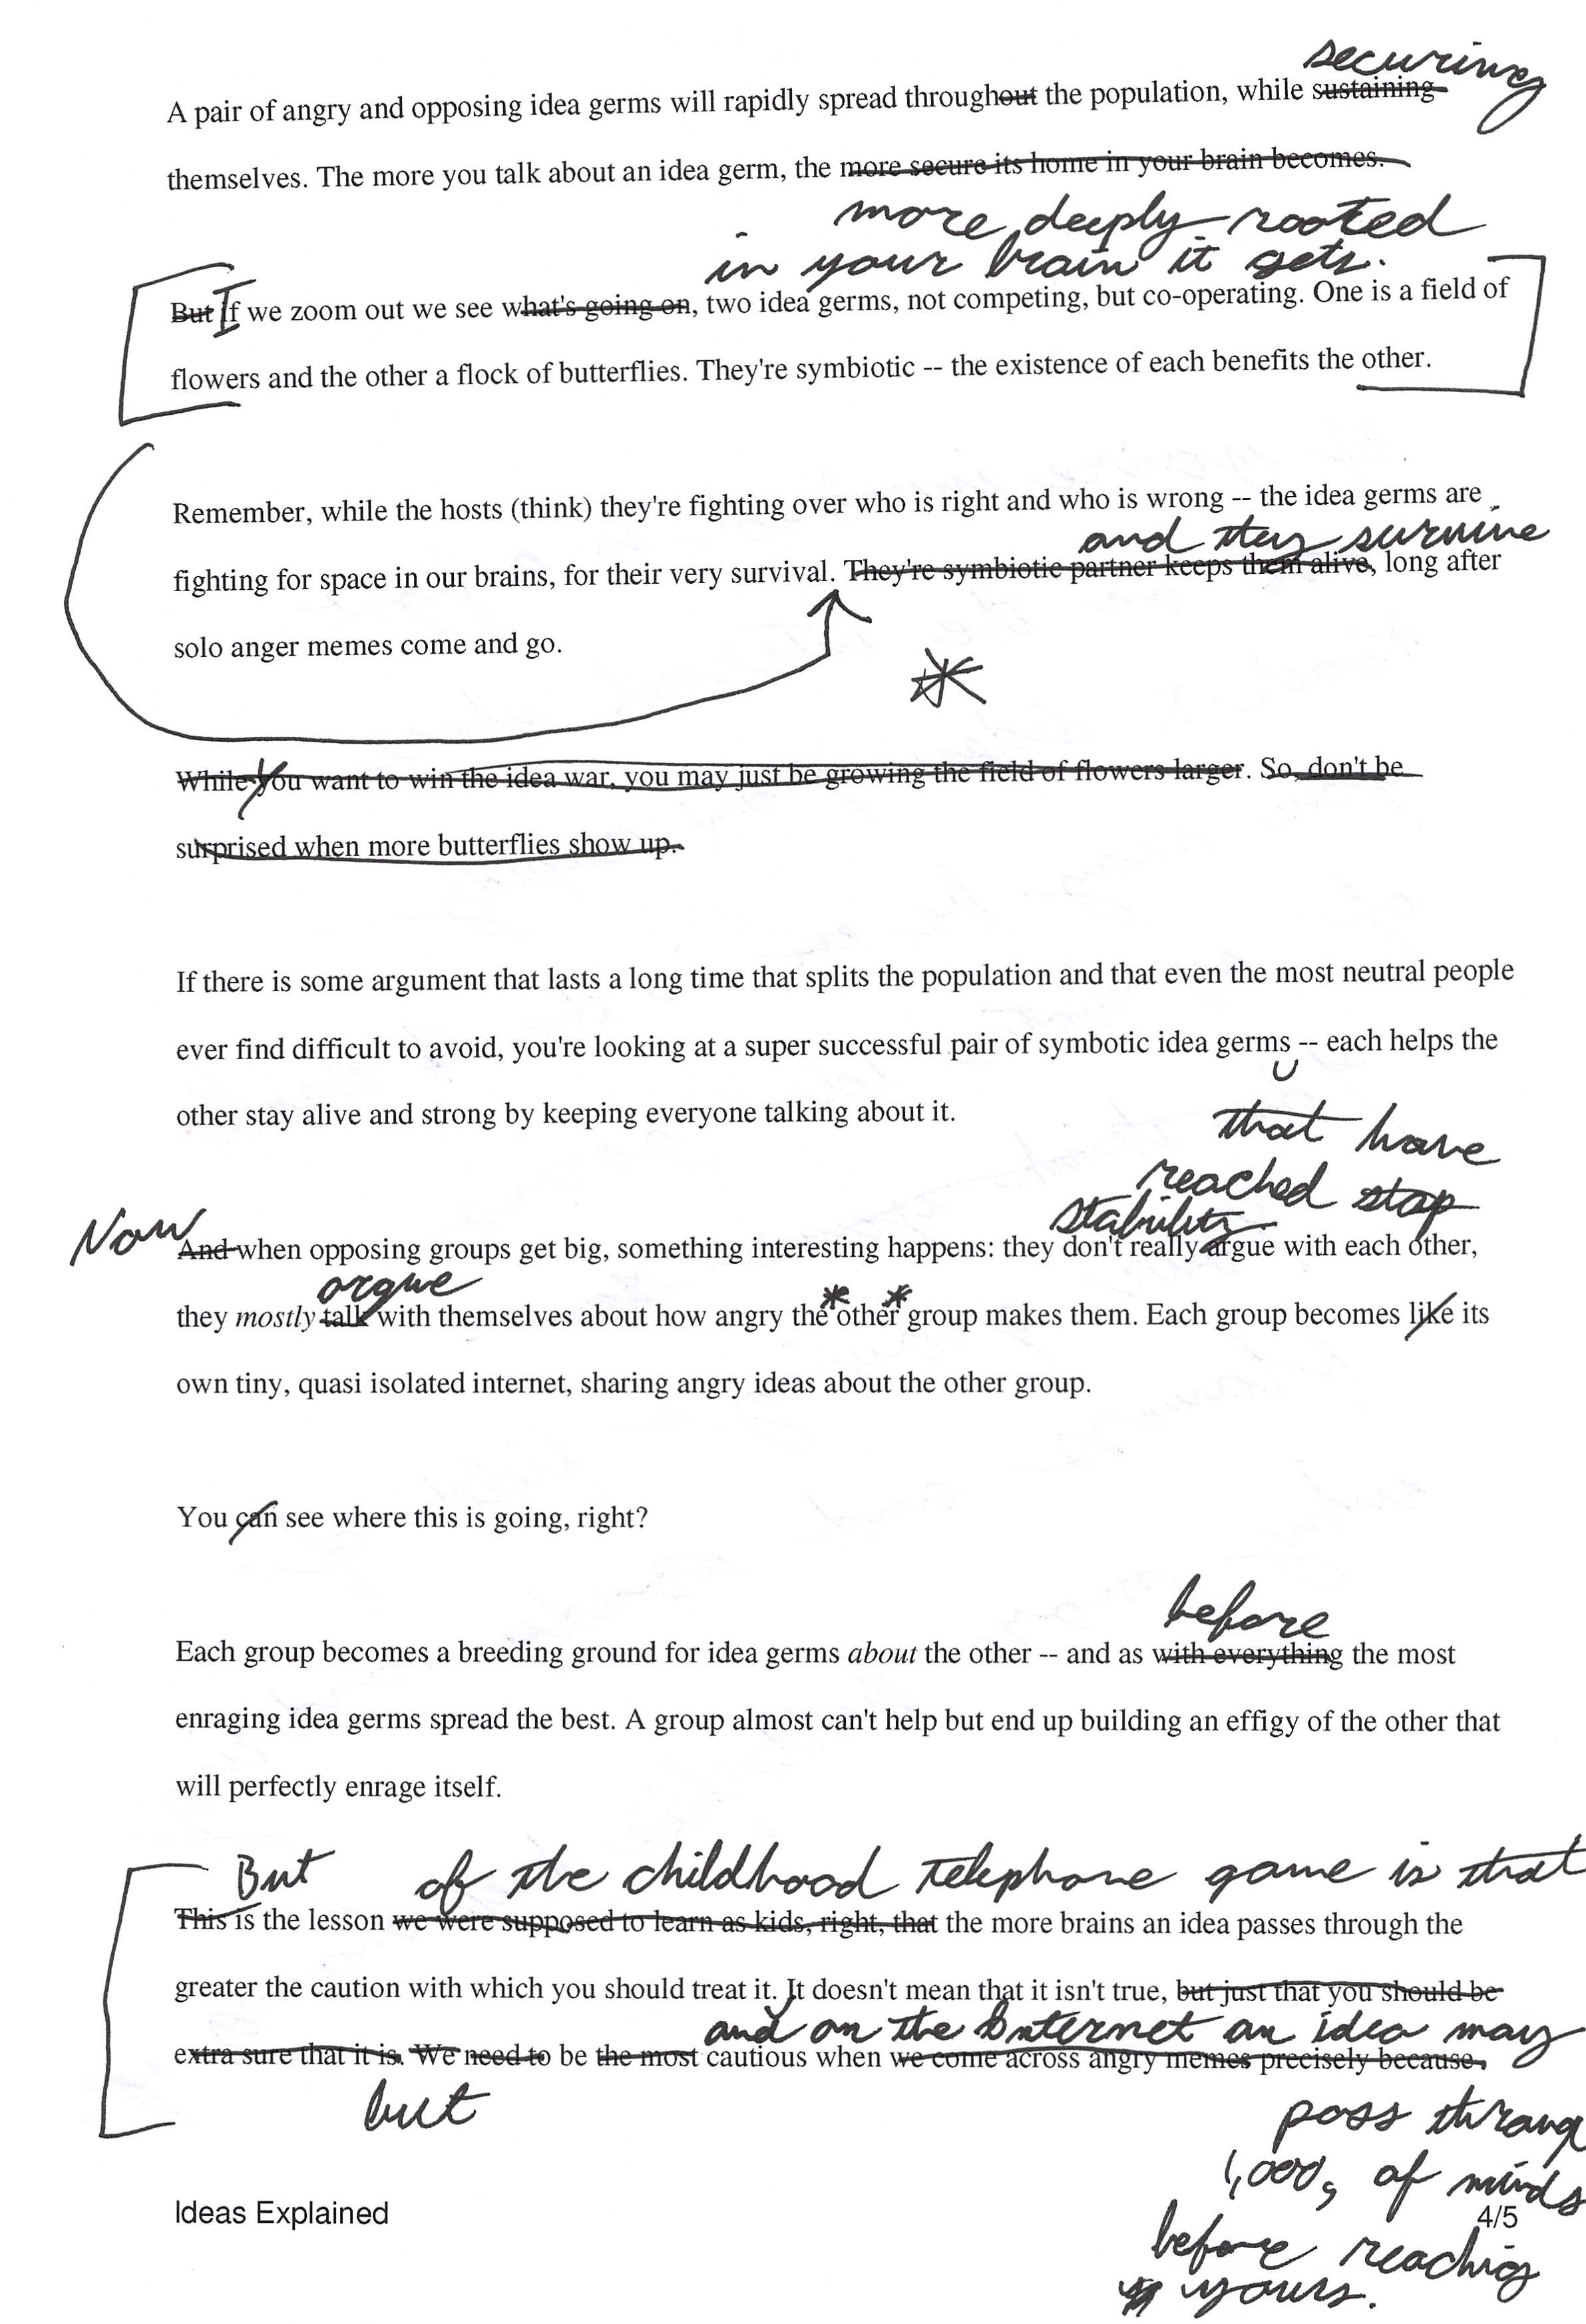 securing
A pair of angry and opposing idea germs will rapidly spread throughout the population, while sustaining
themselves. The more you talk about an idea germ, the more secure its home in your brain becomes.
more deeply rooted
in your brain it gets.
But If we zoom out we see what's going on, two idea germs, not competing, but co-operating. One is a field of
flowers and the other a flock of butterflies. They're symbiotic -- the existence of each benefits the other.
Remember, while the hosts (think) they're fighting over who is right and who is wrong -- the idea germs are
and they survive
fighting for space in our brains, for their very survival. They're symbiotic partner keeps them alive, long after
solo anger memes come and go.
*
While you want to win the idea war, you may just be growing the field of flowers larger. So, don't be
surprised when more butterflies show up.
If there is some argument that lasts a long time that splits the population and that even the most neutral people
ever find difficult to avoid, you're looking at a super successful pair of symbotic idea germs -- each helps the
other stay alive and strong by keeping everyone talking about it.
that have
reached stap
stability
Now
And when opposing groups get big, something interesting happens: they don't really argue with each other,
argue
they mostly talk with themselves about how angry the *other* group makes them. Each group becomes like its
own tiny, quasi isolated internet, sharing angry ideas about the other group.
You can see where this is going, right?
before
Each group becomes a breeding ground for idea germs about the other -- and as with everything the most
enraging idea germs spread the best. A group almost can't help but end up building an effigy of the other that
will perfectly enrage itself.
But of the childhood telephone game is that
This is the lesson we were supposed to learn as kids, right, that the more brains an idea passes through the
greater the caution with which you should treat it. It doesn't mean that it isn't true, but just that you should be
and on the Internet an idea may
extra sure that it is. We need to be the most cautious when we come across angry memes precisely because,
but
pass throug
1,000s of minds
before reaching
yours.
Ideas Explained
4/5